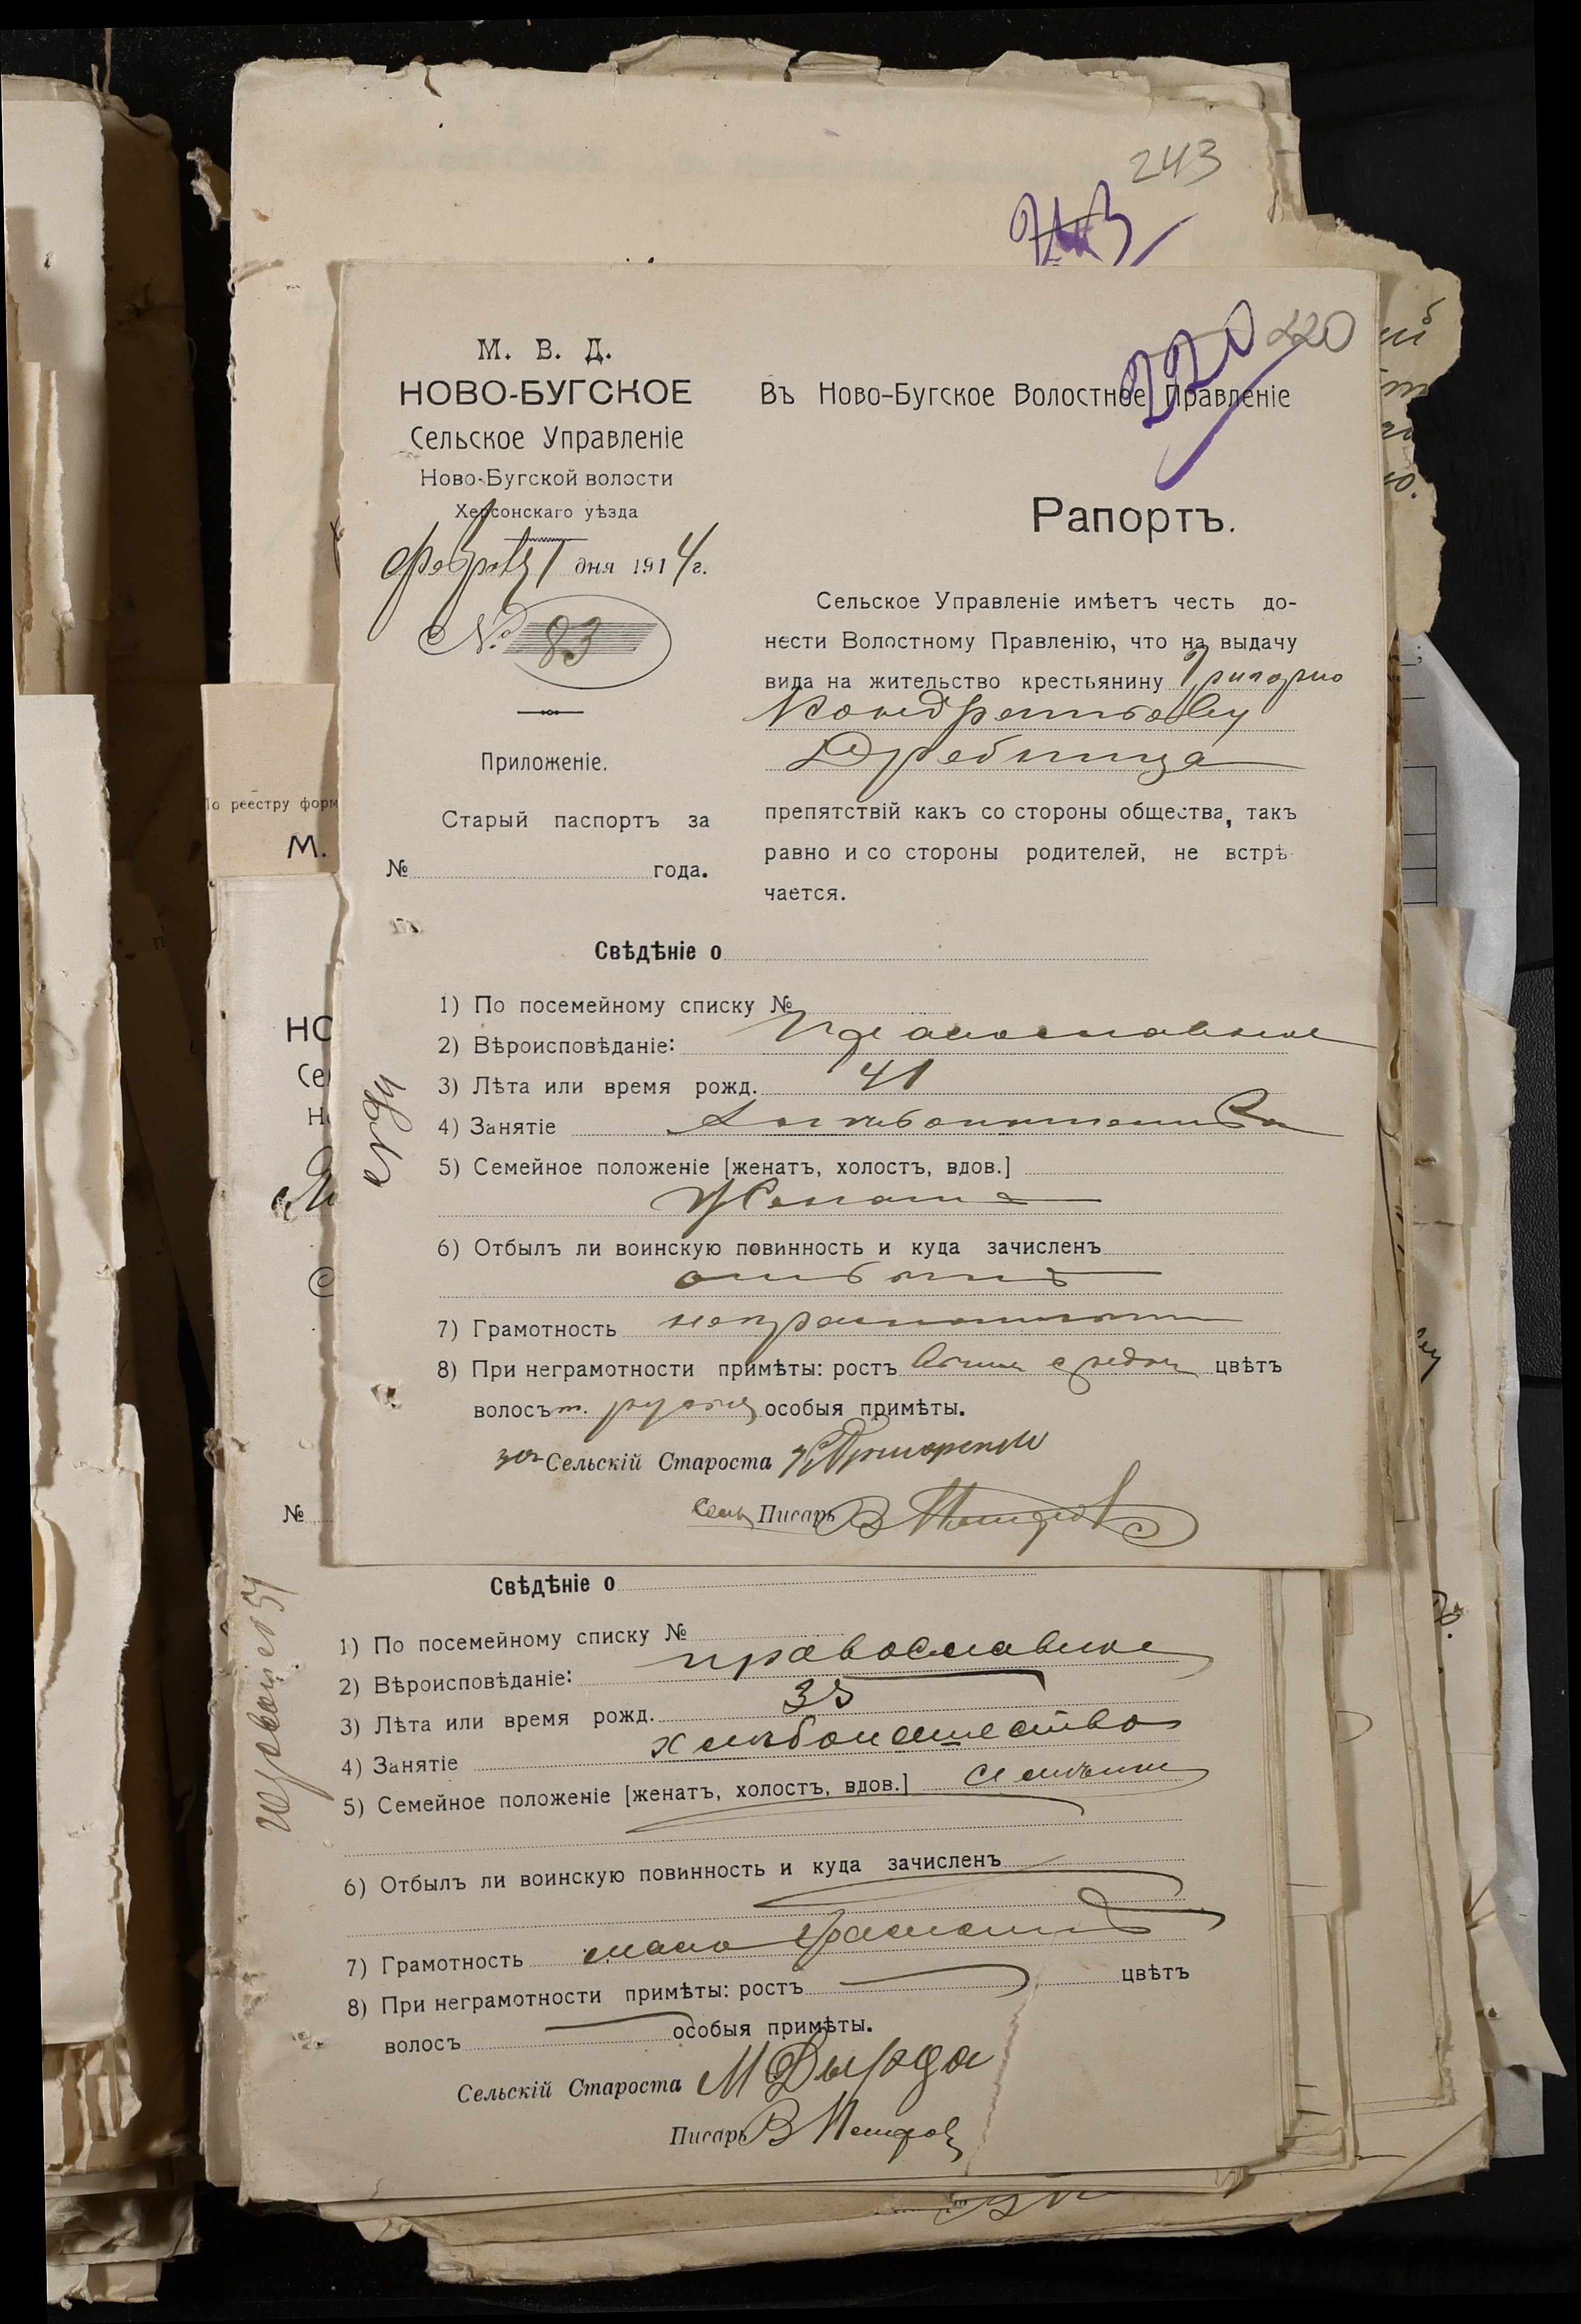 243
220
220
М. В. Д.
НОВО-БУГСКОЕ
Сельское Управленіе
Ново-Бугской волости
Херсонскаго уѣзда
дня 1914 г.
№ 83
Приложеніе.
Старый паспортъ за
№ года.
Въ Ново-Бугское Волостное Правленіе
Рапортъ.
Сельское Управленіе имѣетъ честь до-
нести Волостному Правленію, что на выдачу
вида на жительство крестьянину Григорию
Кондратьеву
препятствій какъ со стороны общества, такъ
равно и со стороны родителей, не встрѣ-
чается.
Свѣдѣніе о
1) По посемейному списку №
2) Вѣроисповѣданіе: Православное
3) Лѣта или время рожд. 41
4) Занятіе
5) Семейное положеніе [женатъ, холостъ, вдов.]
Женатъ
6) Отбылъ ли воинскую повинность и куда зачисленъ
7) Грамотность
8) При неграмотности примѣты: ростъ цвѣтъ
волосъ т. русый особыя примѣты.
за Сельскій Староста
Писарь В
По реестру форм
М.
НО
Се
Н
№
Свѣдѣніе о
1) По посемейному списку №
2) Вѣроисповѣданіе: православное
3) Лѣта или время рожд. 35
4) Занятіе хлѣбопашество
5) Семейное положеніе [женатъ, холостъ, вдов.]
6) Отбылъ ли воинскую повинность и куда зачисленъ
7) Грамотность мало грамотный
8) При неграмотности примѣты: ростъ цвѣтъ
волосъ особыя примѣты.
Сельскій Староста М Дырда
Писарь В